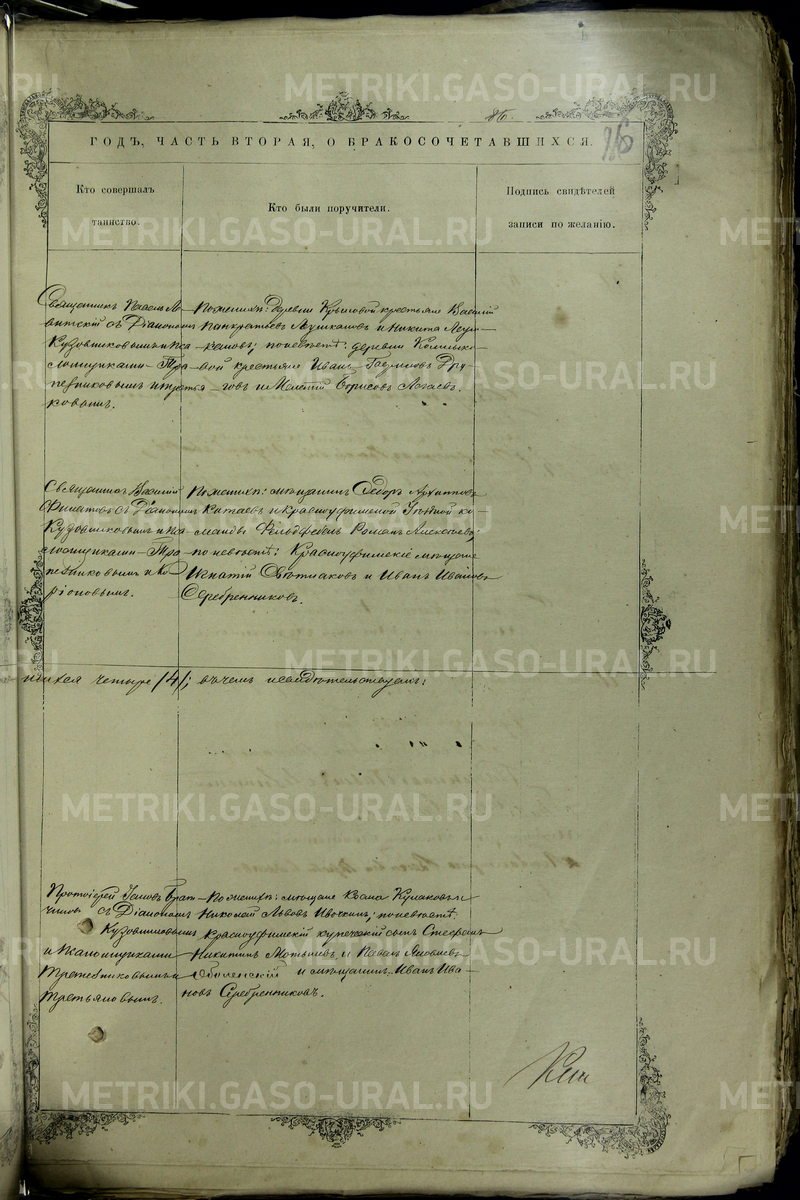 METRIKI.GASO-URAL.RU
86.
86
ГОДЪ, ЧАСТЬ ВТОРАЯ, О БРАКОСОЧЕТАВШИХСЯ.
Кто совершалъ
таинство.
Кто были поручители.
Подпись свидѣтелей
записи по желанію.
Священникъ
витскій съ Діакономъ
Кузовниковымъ и пса-
ломщиками — Тра-
пезниковымъ и Третья-
ковымъ.
По женихѣ: деревни Крыловой крестьяне Василій
Панкратьевъ и Никита
по невѣстѣ: деревни
вой крестьяне Иванъ
говъ и Борисовъ
Священникъ Василій
Филатовъ съ Діакономъ
Кузовниковымъ и пса-
ломщиками — Тра-
пезниковымъ и Ко-
ріоновымъ.
По женихѣ: мѣщанинъ Ѳедоръ Архиповъ
Катаевъ и Красноуфимской Уѣздной ко-
манды Фельдфебель Романъ Алексѣевъ;
по невѣстѣ: Красноуфимскіе мѣщане
Игнатій и Иванъ Ивановъ
Серебренниковъ.
шихся четыре /4/; въ чемъ и свидѣтельствуемъ:
Протоіерей
съ Діакономъ
Кузовниковымъ
и Псаломщиками
Трапезниковымъ и
Третьяковымъ.
По женихѣ: мѣщане Кулаковъ и
Николай Львовъ по невѣстѣ:
Красноуфимскій купеческій сынъ Стефанъ
Никитинъ и Павелъ Яковлевъ
Оболенскій и мѣщанинъ Иванъ Ива-
новъ Серебренниковъ.